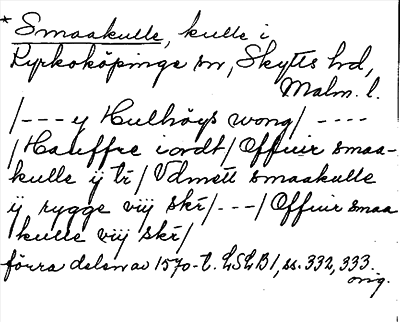 * Smaakulle, kulle i
Kyrkoköpinge sn, Skytts hd,
Malm. l.
/--- y Hulhöys wong/ ----
/Hauffre iordt/ Offuir smaa-
kulle ÿ tr/ Vdmett smaakulle
ÿ rygge viÿ skr/---/ Offuir smaa
kulle viÿ skr/
förra delen av 1570-t. LSLB1, ss. 332, 333.
orig.